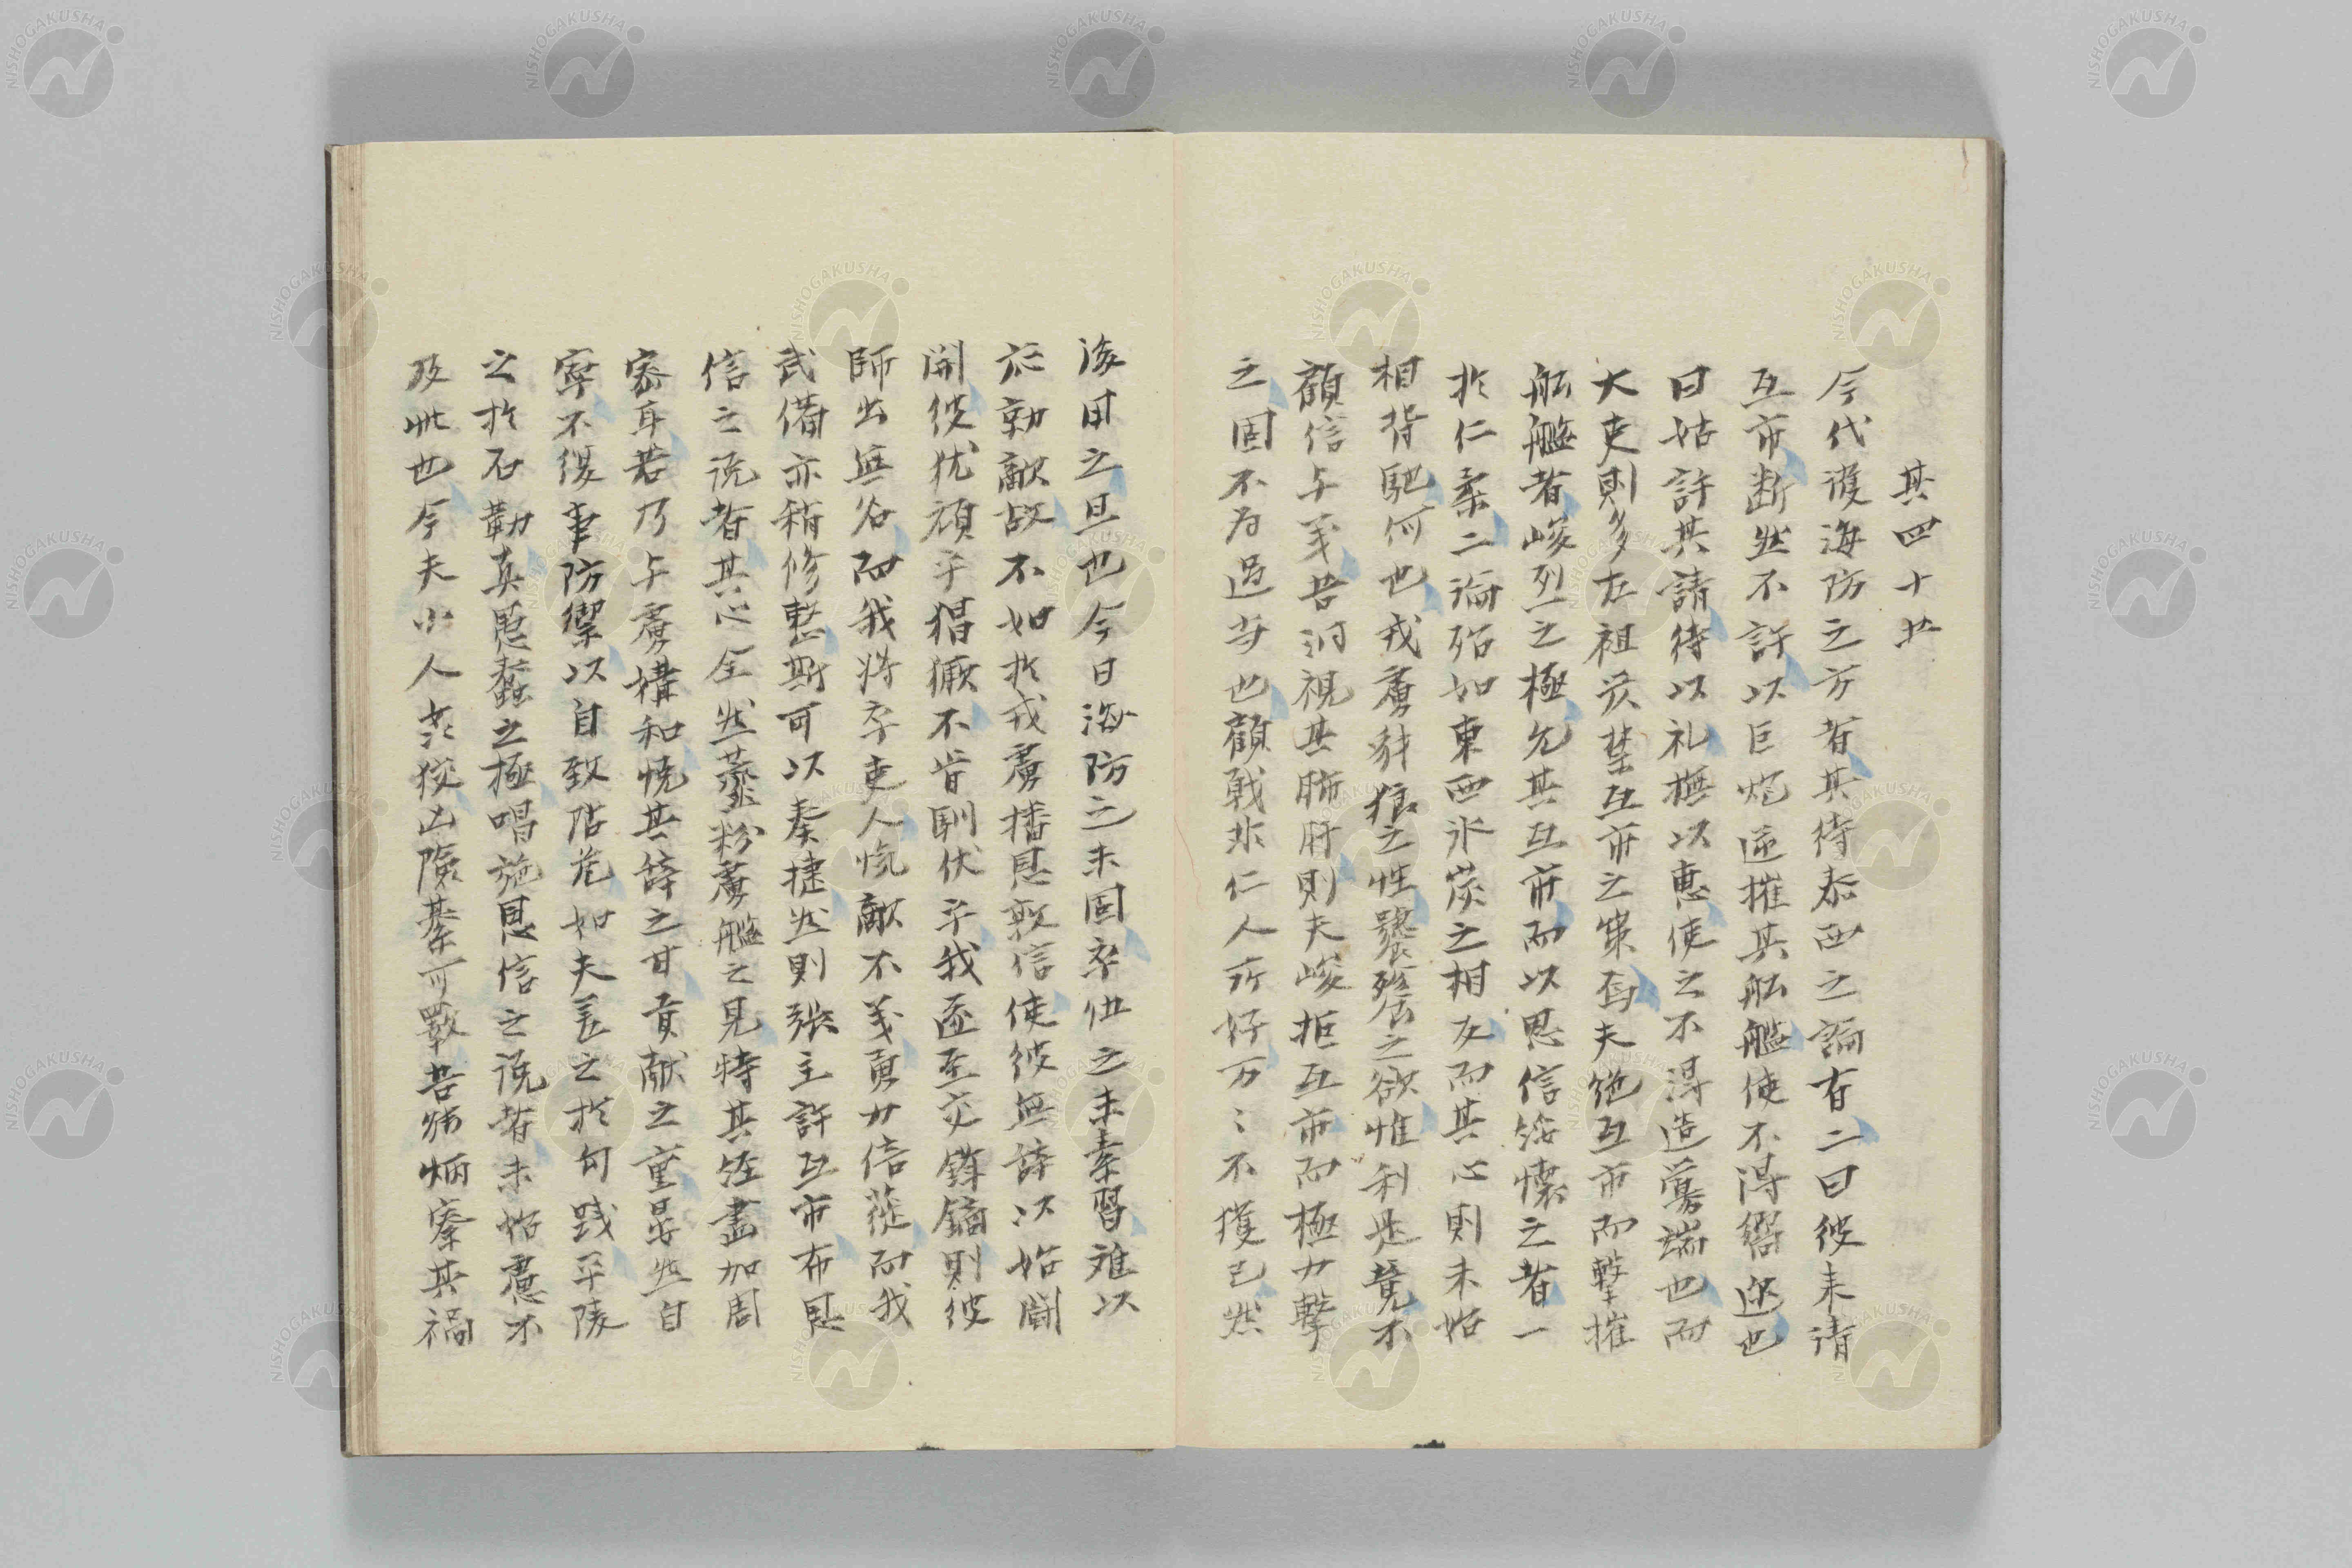 其四十五
今代濩海防之方者其待泰西之論有二曰彼来请
互市断然不許以巨炮逆摧其舩艦使不得響迩也
曰姑許其請待以礼撫以恵使之不得造舋端也而
大吏則多左祖炭禁互市之策焉夫絶互市而撃摧
舩艦者峻烈之極允其互市而以恩信綏懐之者一
於仁柔二論殆如東西氷炭之相反而其心則未始
相背馳何也戎虜豺狼之性饕餮之欲惟利是競不
顧信与義苟洞視其肺肝則夫峻拒互市而極力撃
之固不为過当也顧戦非仁人所好万〻不獲已然
後用之且也今日海防之未固卒伍之未素習难以
応勍敵故不如於戎虜播恩敦信使彼無辞以始闘
開彼犹頑乎猖獗不肯馴伏乎我
師出無名而我将卒吏人愾敵不義勇力倍蓰而我
武備亦稍修整斯可以奏捷然則張主許互市布恩
信之説者其心全然虀粉虜艦之見特其經畫加周
密耳若乃与虜構和悦其辞之甘貢献之重晏然自
寧不復事防禦以自致阽危如夫差之於句践平陵
之於石勒真愚蠢之極唱施恩信之説者未始慮不
及此也今夫小人
可数苦
炳察其禍
NISHOGAKUSHA